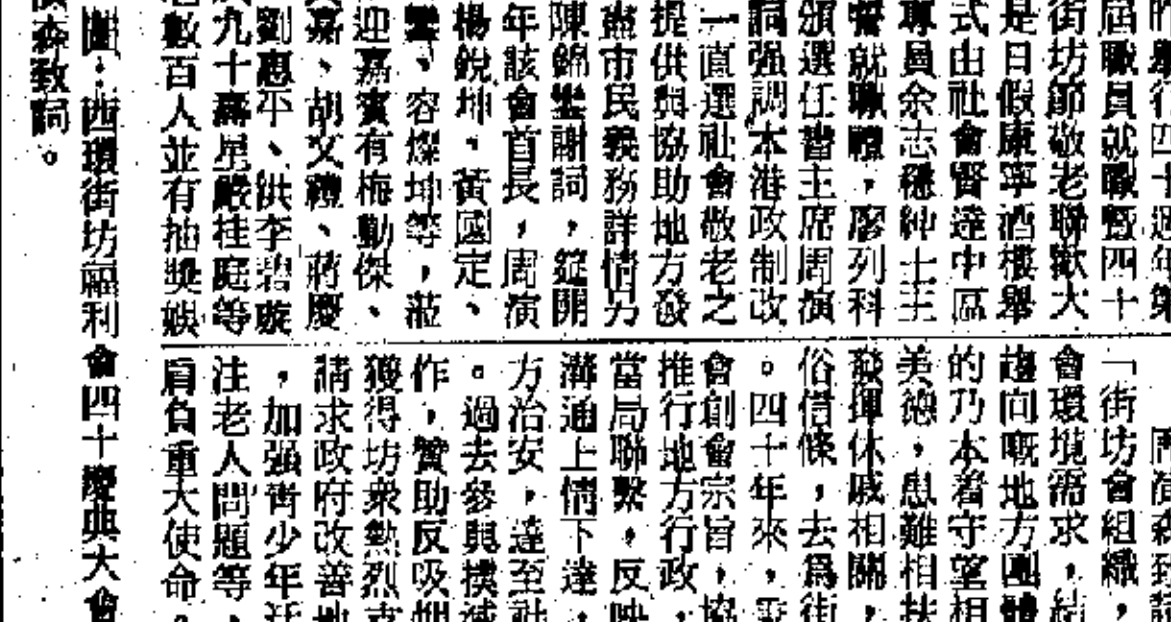 屆職員就職暨四十
街坊節敬老聯歡大
是日假康寧酒樓舉
式由社會賢達中區
專員余志穩紳士主
誓就職禮，廖列科
頒選任書主席周演
詞强調本港政制改
一直選社會敬老之
提供與協助地方發
盡市民義務詳情另
陳錦鑾謝詞，筵開
年該會首長，周演
楊銳坤，黃國定、
、容燦坤等，蒞
迎嘉賓有梅勳傑、
嘉、胡文禮、蔣慶
劉惠平、洪李碧璇
九十嘉星嚴桂庭等
數百人並有抽獎娛
「街坊會組織，
會環境需求，結
趨向嘅地方團體
的乃本着守望相
美德，患難相扶
發揮休戚相關，
俗信條，去爲街
。四十年來，
會創會宗旨，協
推行地方行政，
當局聯繫，反映
溝通上情下達，
方治安，達至社
。過去參與撲滅
作，贊助反吸烟
獲得坊衆熱烈支
請求政府改善地
，加强靑少年活
注老人問題等，
肩負重大使命。
圖：西環街坊福利會四十慶典大會
森致詞。